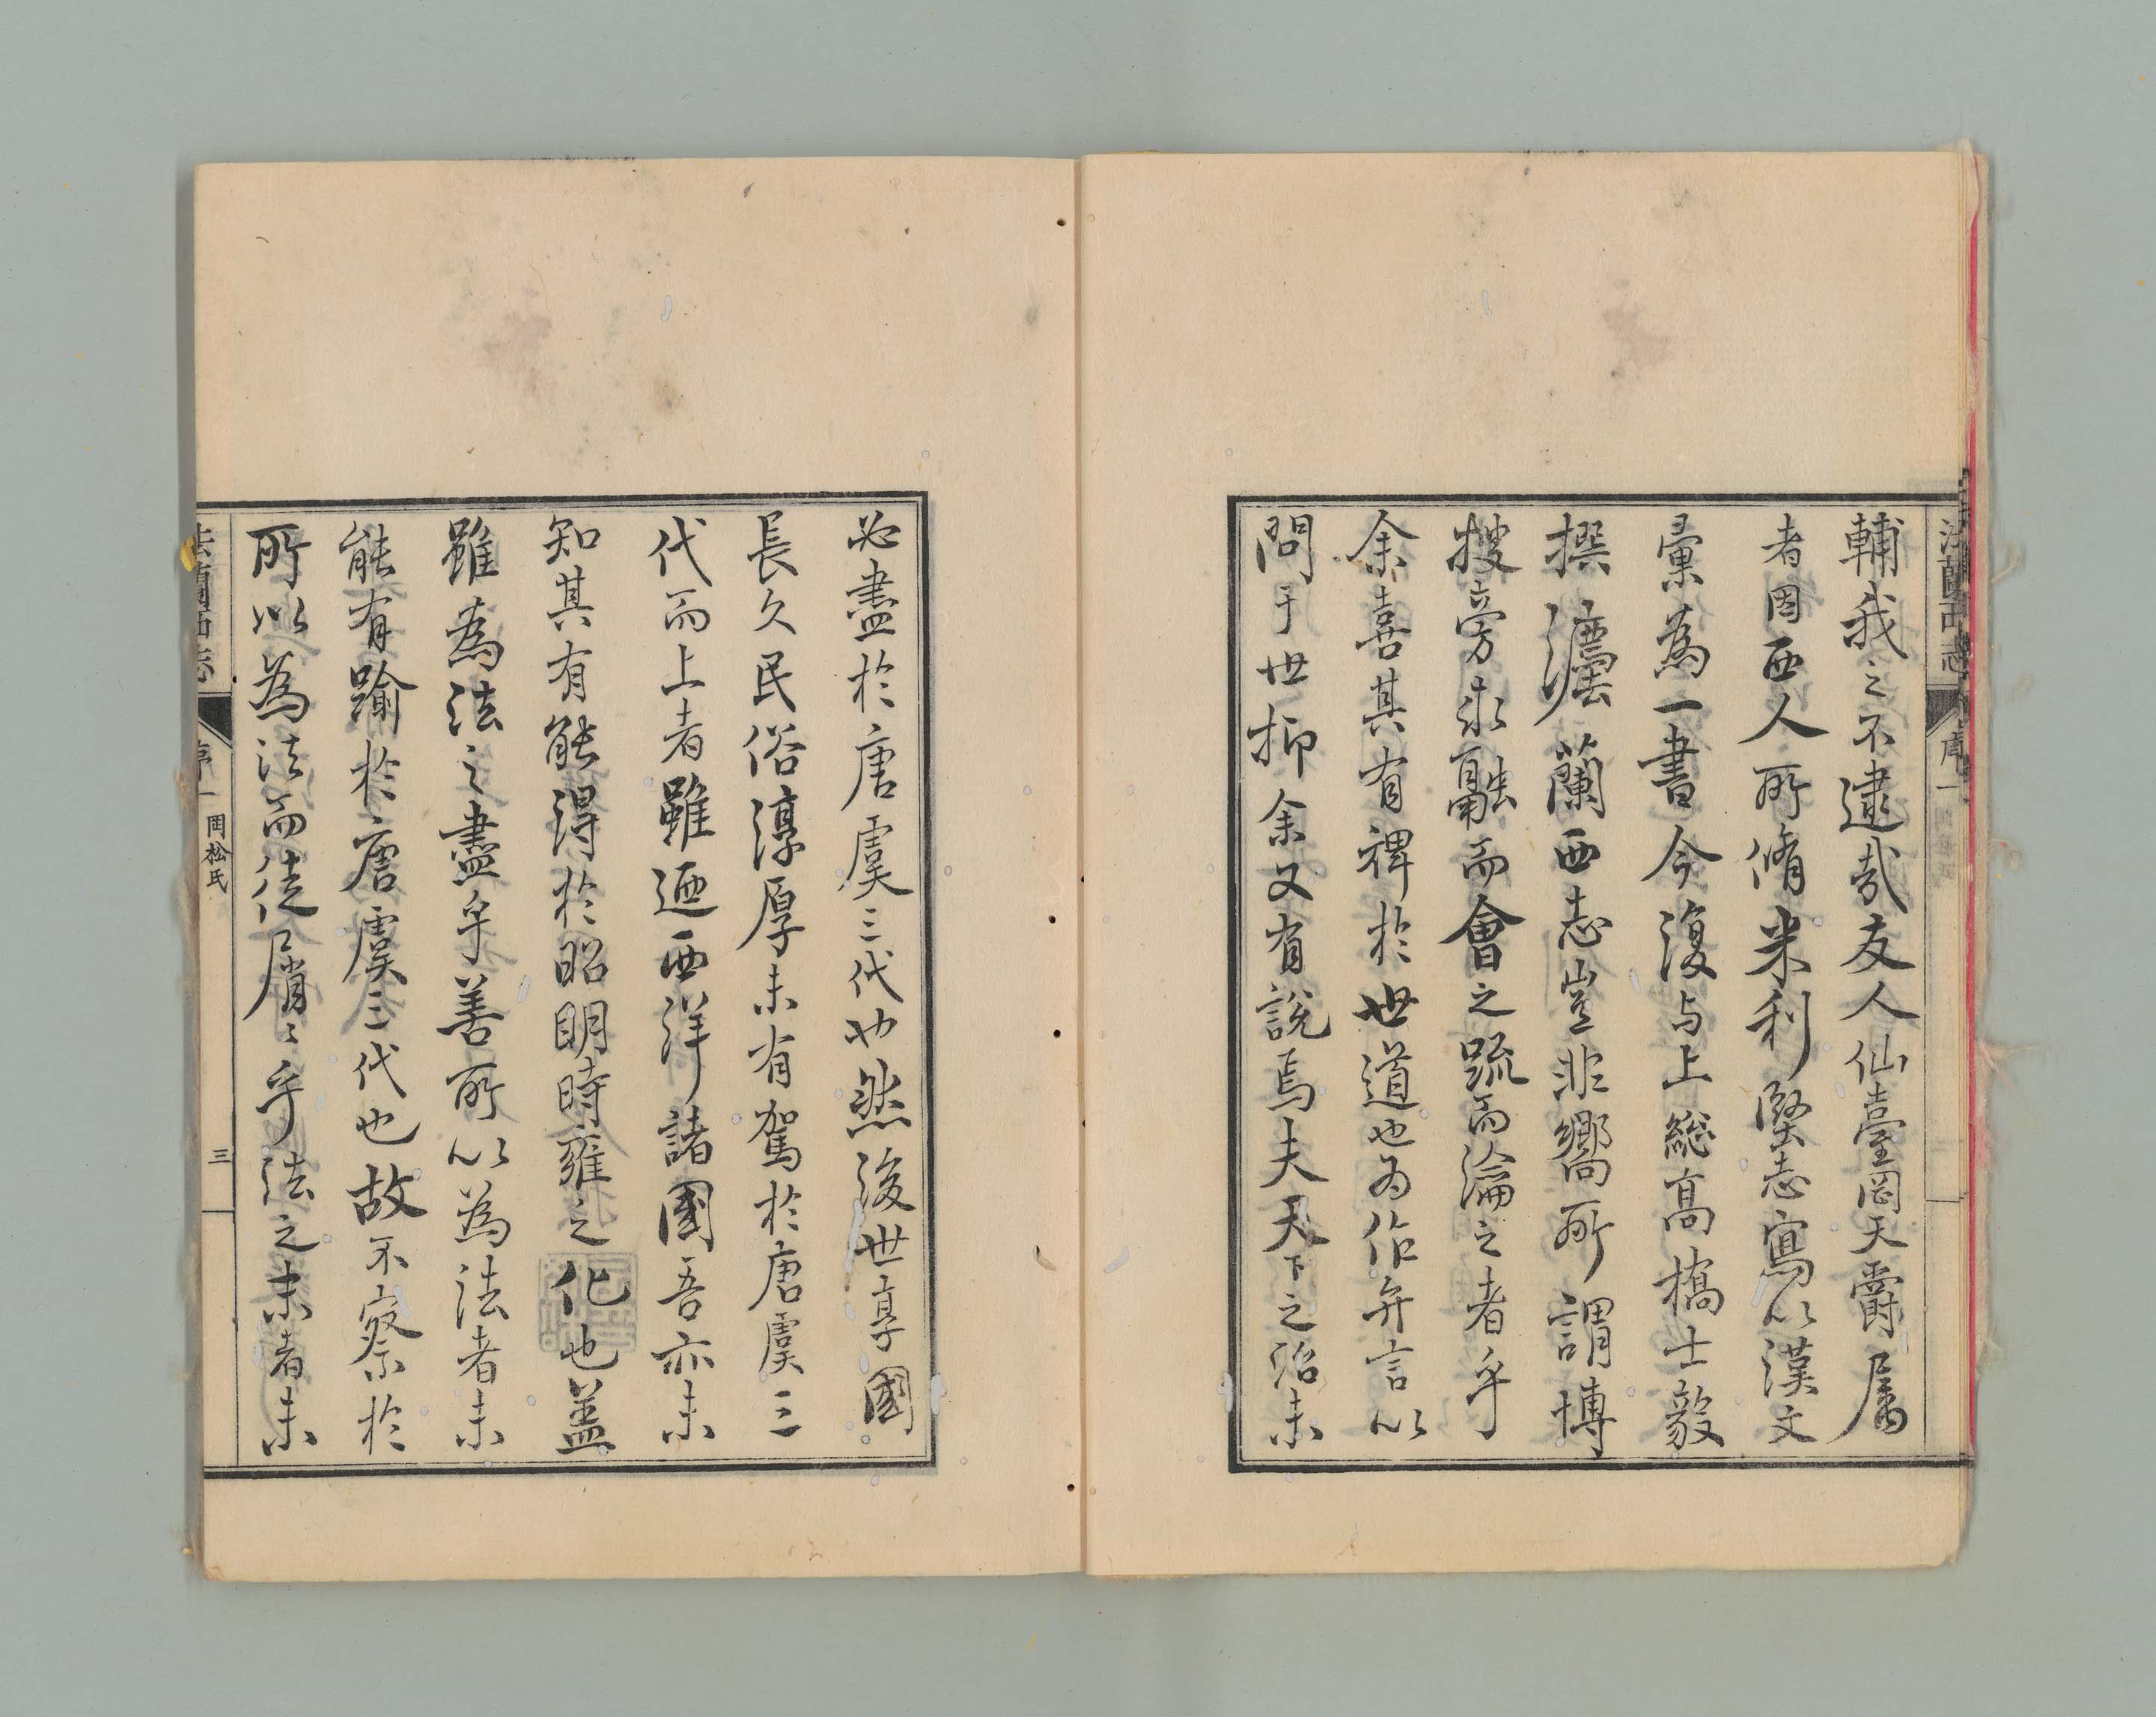 輔我之不逮哉友人仙臺岡天爵屬
者因西人所脩米利堅志寫以漢文
彙為一書今復与上総高橋士毅
撰灋蘭西志豈非嚮所謂博
搜旁求融而會之疏而論之者乎
余喜其有裨於世道也為作弁言以
問于世抑余又有說焉夫天下之治未
必盡於唐虞三代也然後世享國
長久民俗淳厚未有駕於唐虞三
代而上者雖迺西洋諸國吾亦未
知其有能得於昭明時雍之化也蓋
雖為法之盡乎善所以為法者未
能有踰於唐虞三代也故不察於
所以為法而徒屑〻乎法之末者未
法蘭西志
序一
岡松氏
三